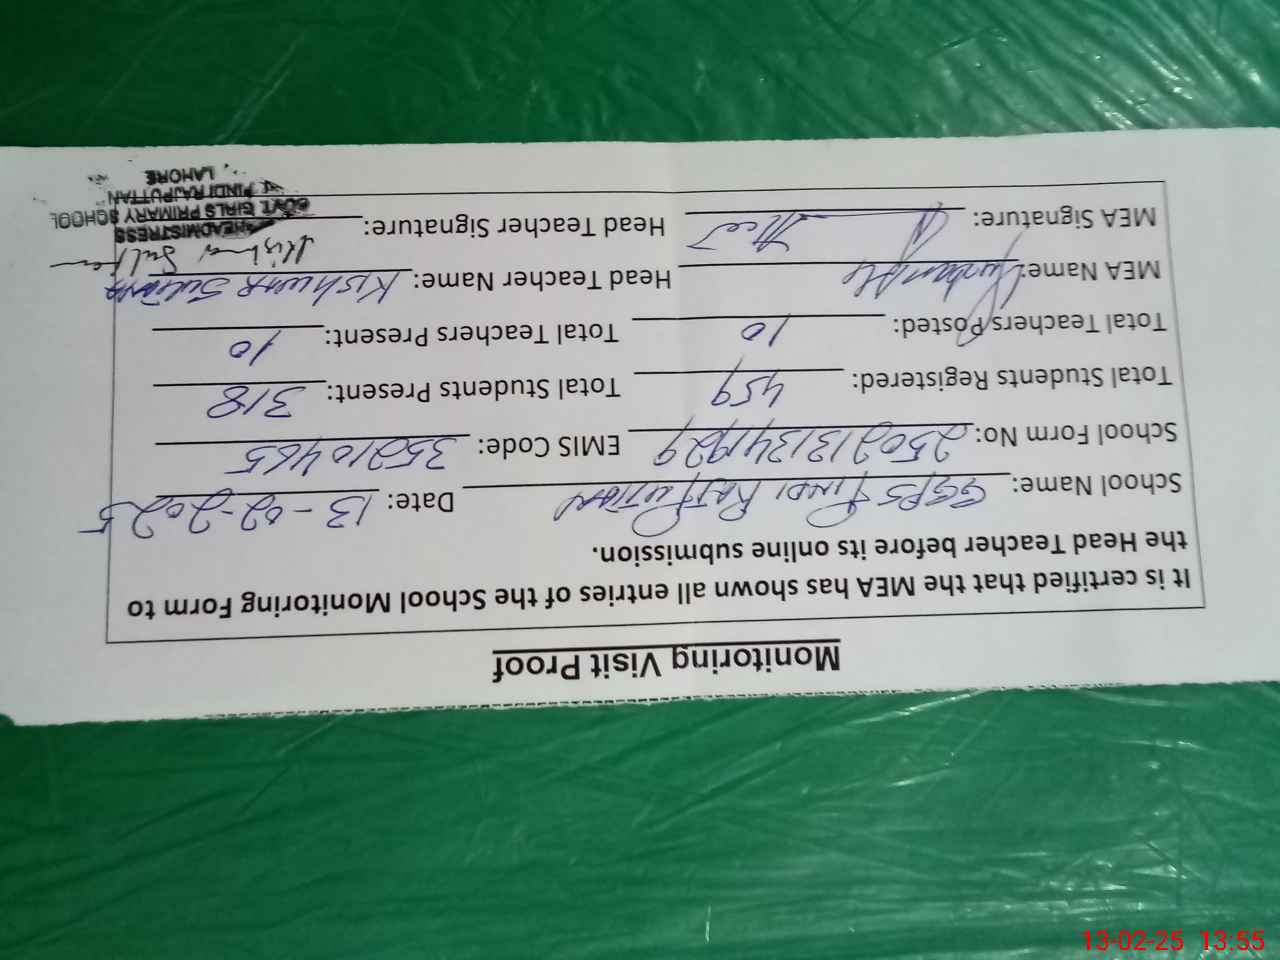 Monitoring Visit Proof
It is certified that the MEA has shown all entries of the School Monitoring Form to
the Head Teacher before its online submission.
School Name: GGPS PINDI RAJPUTTAN Date: 13-02-2025
School Form No: EMIS Code: 35210465
Total Students Registered: 459 Total Students Present: 318
Total Teachers Posted: 10 Total Teachers Present: 10
MEA Name: Head Teacher Name: Kishwar Sultana
MEA Signature: Head Teacher Signature:
HEADMISTRESS
GOVT. GIRLS PRIMARY SCHOOL
PINDI RAJPUTTAN
LAHORE
13-02-25 13:55